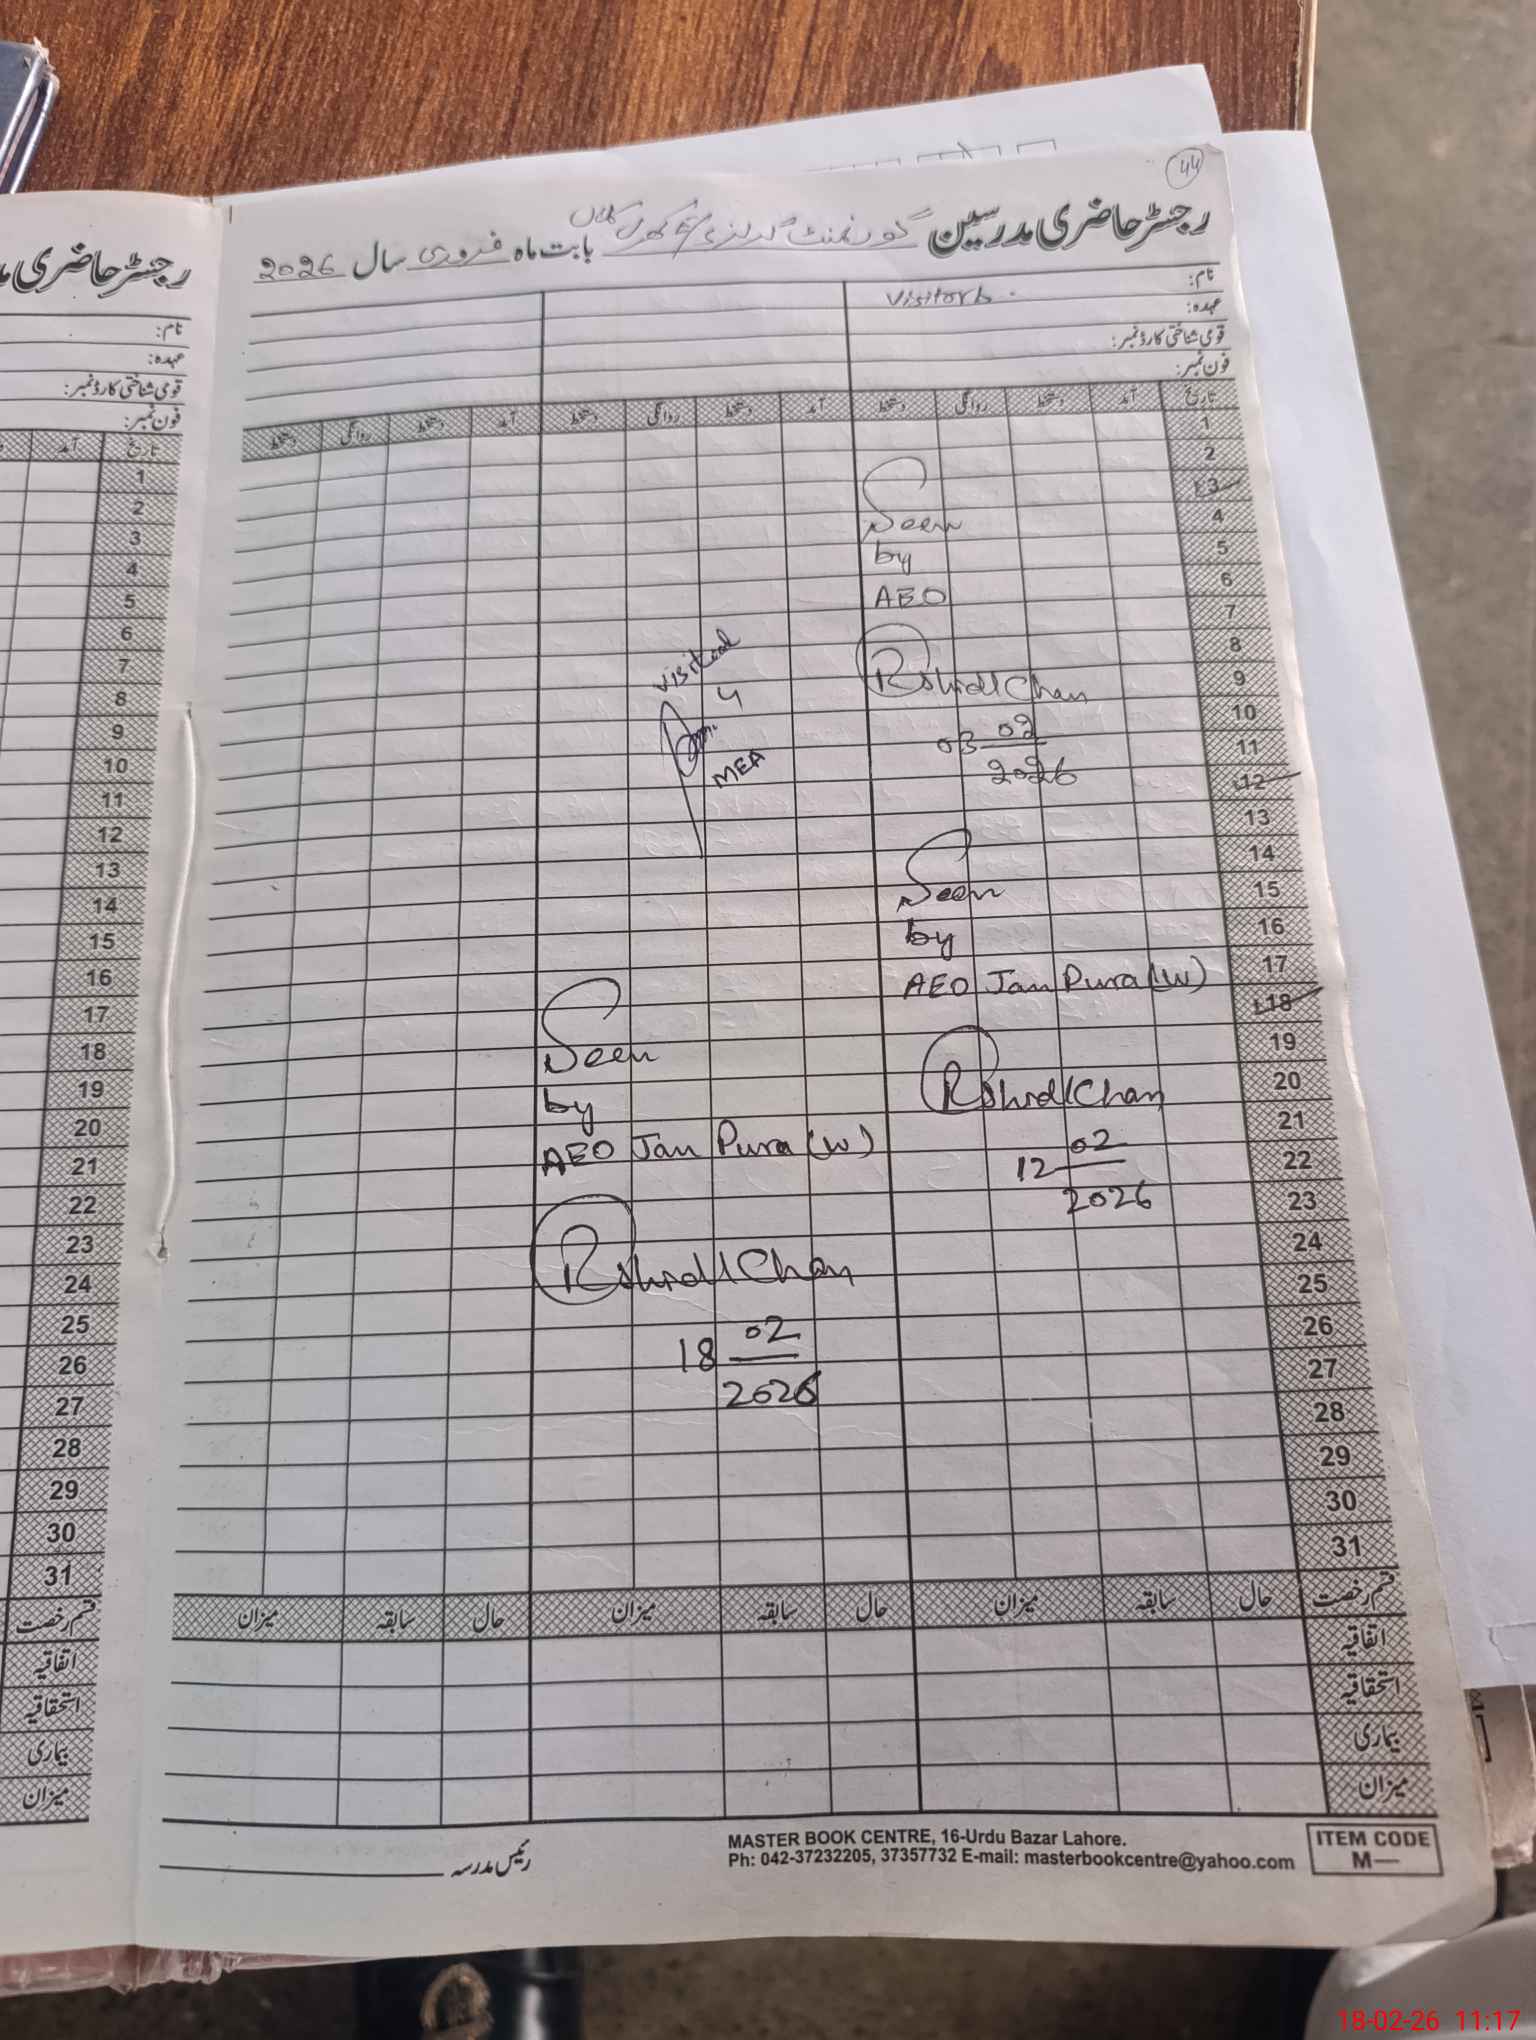 44
رجسٹر حاضری مدرسین گورنمنٹ گرلز بابت ماہ فروری سال 2026
نام:
Visitors.
عہدہ:
قومی شناختی کارڈ نمبر:
فون نمبر:
تاریخ آمد دستخط روانگی دستخط آمد دستخط روانگی دستخط آمد دستخط روانگی دستخط
1
2
3
4
5
6
7
8
9
10
11
12
13
14
15
16
17
18
19
20
21
22
23
24
25
26
27
28
29
30
31
Seen
by
AEO
03 02
2026
Seen
by
AEO Jan Pura (W)
12 02
2026
Visited
MEA
Seen
by
AEO Jan Pura (W)
18 02
2026
قسم رخصت حال سابقہ میزان حال سابقہ میزان حال سابقہ میزان
اتفاقیہ
استحقاقیہ
بیماری
میزان
رئیس مدرسہ
MASTER BOOK CENTRE, 16-Urdu Bazar Lahore.
Ph: 042-37232205, 37357732 E-mail: masterbookcentre@yahoo.com
ITEM CODE
M—
رجسٹر حاضری
نام:
عہدہ:
قومی شناختی کارڈ نمبر:
فون نمبر:
تاریخ آمد
1
2
3
4
5
6
7
8
9
10
11
12
13
14
15
16
17
18
19
20
21
22
23
24
25
26
27
28
29
30
31
قسم رخصت
اتفاقیہ
استحقاقیہ
بیماری
میزان
18-02-26 11:17